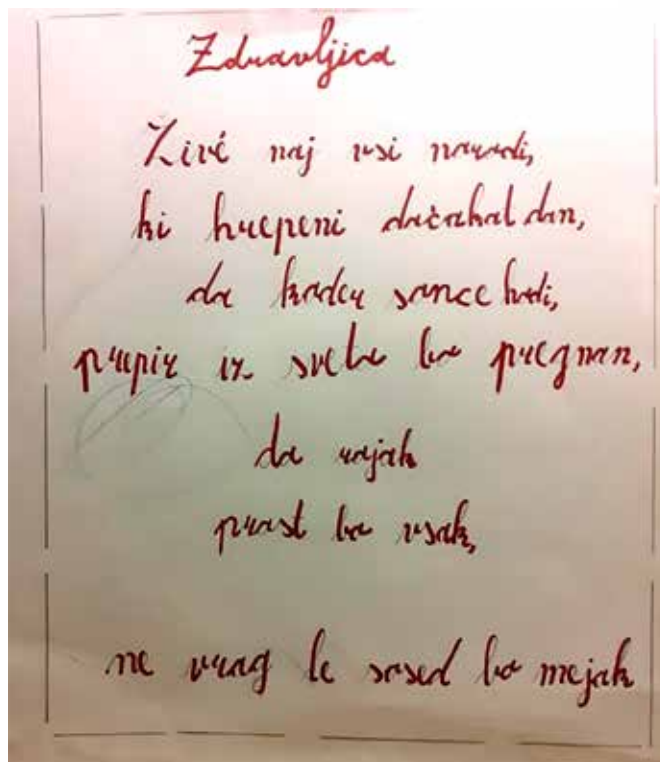 Zdravljica
Živé naj vsi narodi,
ki hrepene dočakat dan,
da koder sonce hodi,
prepir iz sveta bo pregnan,
da rojak
prost bo vsak,
ne vrag le sosed bo mejak